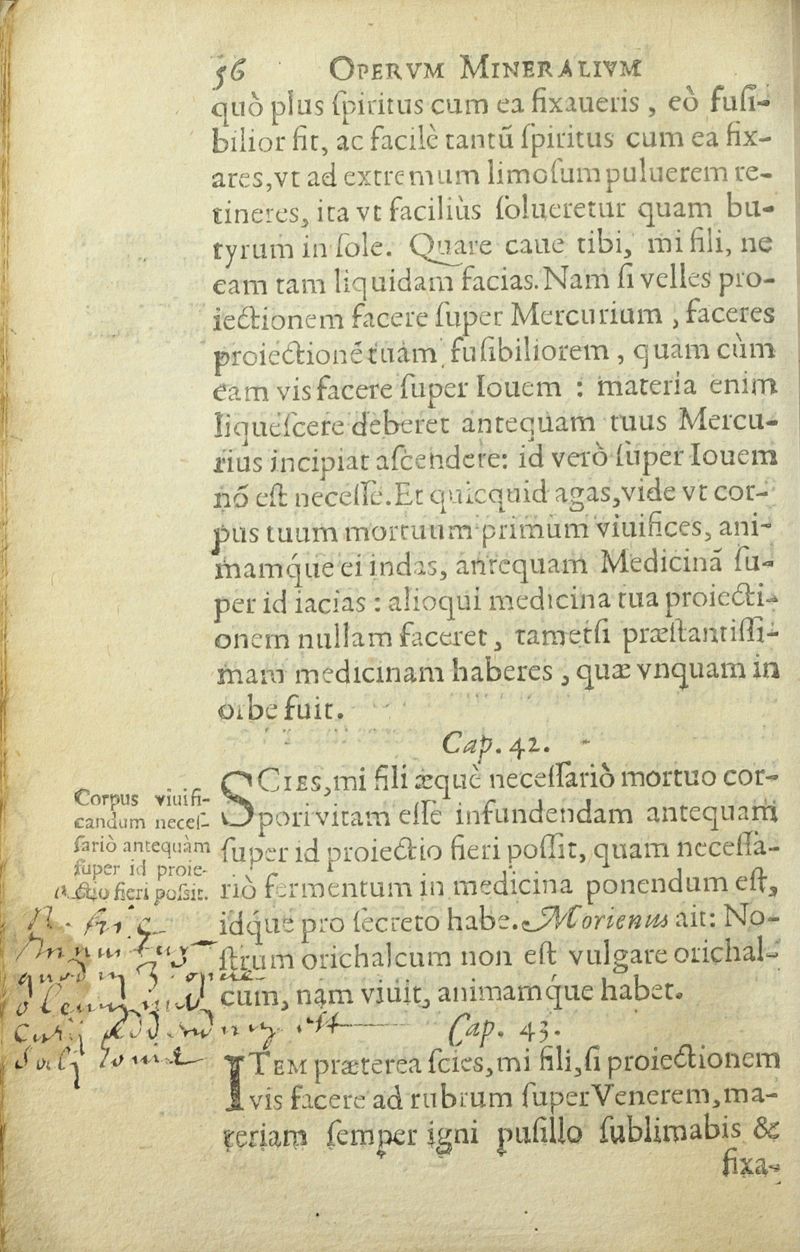 56 OPERVM MINERALIVM
quò plus ſpiritus cum ea fixaueris, eò fuſi-
bilior fit, ac facilè tantũ ſpiritus cum ea fix-
ares, vt ad extremum limoſum puluerem re-
tineres, ita vt faciliùs ſolueretur quam bu-
tyrum in ſole. Quare caue tibi, mi fili, ne
eam tam liquidam facias. Nam ſi velles pro-
iectionem facere ſuper Mercurium, faceres
proiectionē tuam fuſibiliorem, quàm cùm
eam vis facere ſuper Iouem : materia enim
liqueſcere deberet antequam tuus Mercu-
rius incipiat aſcendere: id verò ſuper Iouem
nō eſt neceſſe. Et quicquid agas, vide vt cor-
pus tuum mortuum primùm viuifices, ani-
mamque ei indas, antequam Medicinã ſu-
per id iacias : alioqui medicina tua proiecti-
onem nullam faceret, tametſi præſtantiſſi-
mam medicinam haberes, quæ vnquam in
orbe fuit.
Cap. 42.
SCIES, mi fili æquè neceſſariò mortuo cor-
pori vitam eſſe infundendam antequam
ſuper id proiectio fieri poſſit, quam neceſſa-
riò fermentum in medicina ponendum eſt,
idque pro ſecreto habe. Morienus ait: No-
ſtrum orichalcum non eſt vulgare orichal-
cum, nam viuit, animamque habet.
Cap. 43.
ITEM præterea ſcies, mi fili, ſi proiectionem
vis facere ad rubrum ſuper Venerem, ma-
teriam ſemper igni puſillo ſublimabis &
fixa-
Corpus viuifi-
candum neceſ-
ſariò antequàm
ſuper id proie-
ctio fieri poſsit.